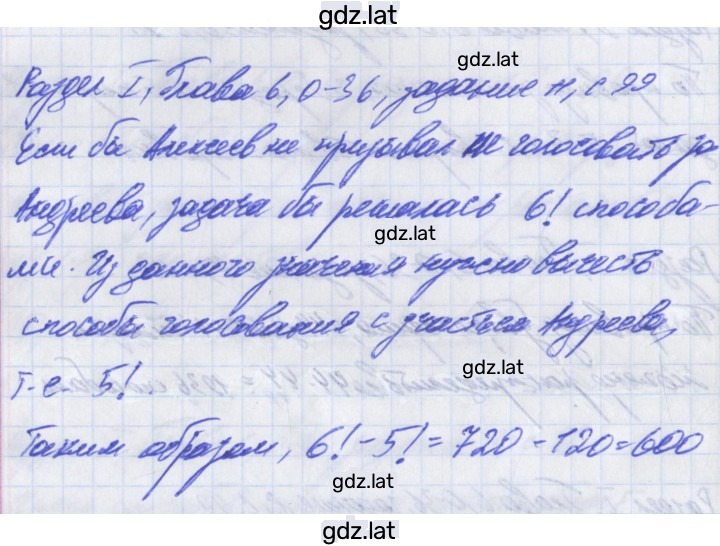 gdz.lat
gdz.lat
Раздел I, Глава 6, О-36, задание н, с 99
Если бы Алексеев не призывал не голосовать за
Андреева, задача бы решалась 6! способа-
gdz.lat
ми. Из данного значения нужно вычесть
способы голосования с участьем Андреева,
gdz.lat
т-е- 5!.
Таким образом, 6! - 5! = 720 - 120 = 600
gdz.lat
gdz.lat